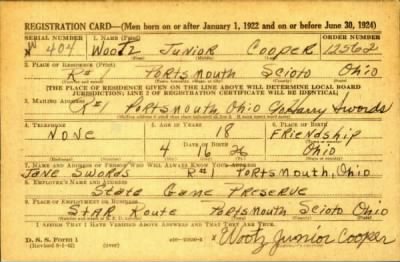 REGISTRATION CARD—(Men born on or after January 1, 1922 and on or before June 30, 1924)
SERIAL NUMBER 1. NAME (Print) ORDER NUMBER
W 404 Wootz Junior Cooper 12562
(First) (Middle) (Last)
2. PLACE OF RESIDENCE (Print)
R#1 Portsmouth Scioto Ohio
[THE PLACE OF RESIDENCE GIVEN ON THE LINE ABOVE WILL DETERMINE LOCAL BOARD
JURISDICTION; LINE 2 OF REGISTRATION CERTIFICATE WILL BE IDENTICAL]
3. MAILING ADDRESS
R#1 Portsmouth Ohio Harry Swords
4. TELEPHONE 5. AGE IN YEARS 6. PLACE OF BIRTH
None 18 Friendship
DATE OF BIRTH
4 16 Ohio
7. NAME AND ADDRESS OF PERSON WHO WILL ALWAYS KNOW YOUR ADDRESS
Jane Swords R#1 Portsmouth, Ohio
8. EMPLOYER'S NAME AND ADDRESS
State Game Preserve
9. PLACE OF EMPLOYMENT OR BUSINESS
Star Route Portsmouth Scioto Ohio
I AFFIRM THAT I HAVE VERIFIED ABOVE ANSWERS AND THAT THEY ARE TRUE.
D. S. S. Form 1
Wootz Junior Cooper